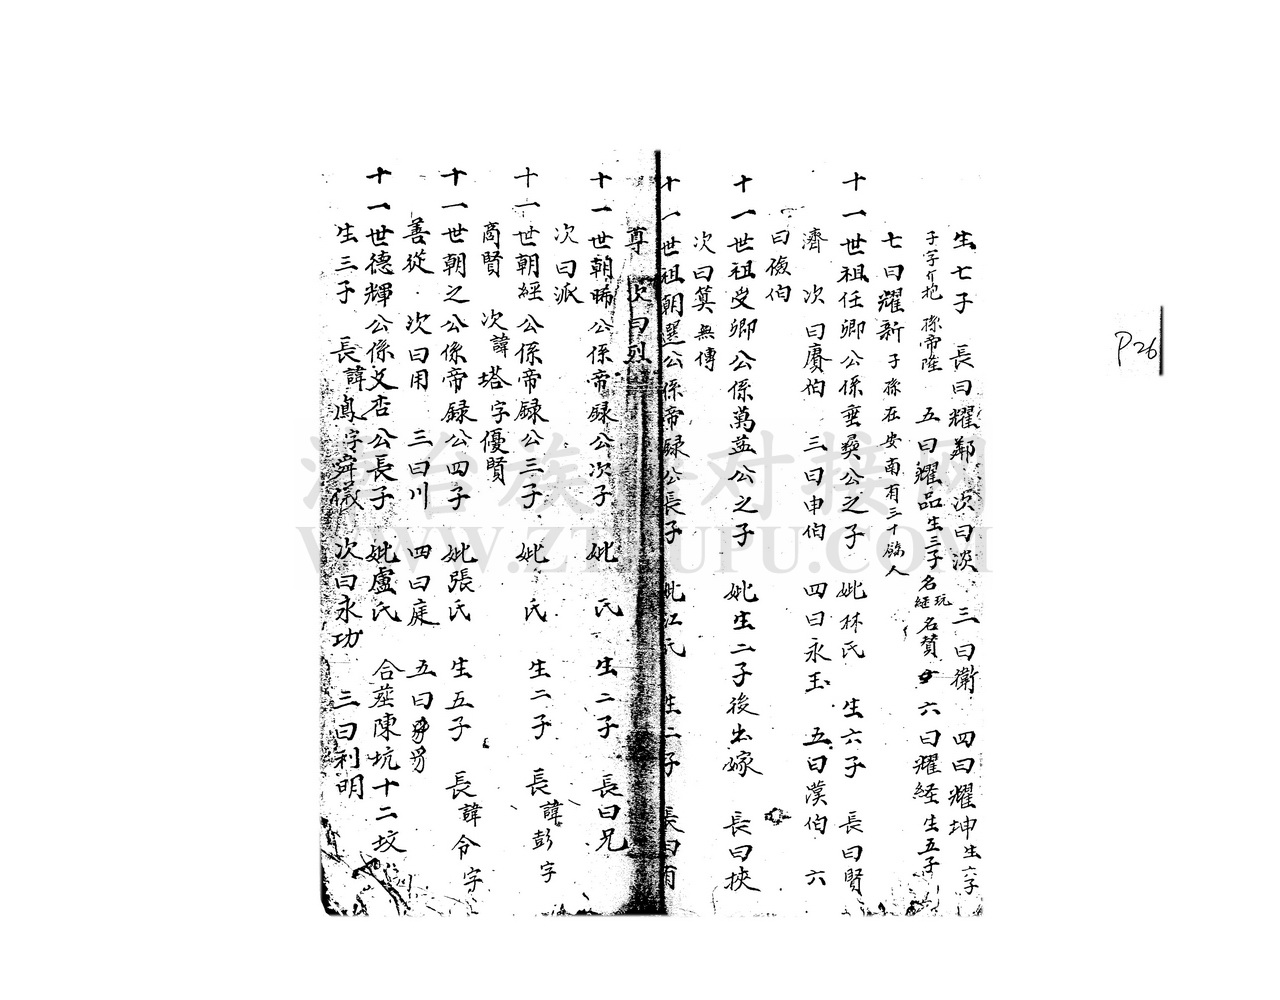 生七子 長曰耀鄰 次曰淡 三曰衛 四曰耀坤生六子
子字介抱 孫帝隆 五曰耀品生三子名玩經名贊 六曰耀経生五子
七曰耀新子孫在安南有三十餘人
十一世祖任卿公係垂奠公之子 妣林氏 生六子 長曰賢
濟 次曰賡伯 三曰申伯 四曰永玉 五曰漢伯 六
曰儉伯
十一世祖受卿公係萬益公之子 妣生二子後出嫁 長曰挾
次曰箕無傳
十一世祖朝選公係帝録公長子 妣江氏 生二子 長曰有
尊 次曰烈
十一世朝晞公係帝録公次子 妣 氏 生二子 長曰兄
次曰派
十一世朝經公係帝録公三子 妣 氏 生二子 長諱彭字
商賢 次諱塔字優賢
十一世朝之公係帝録公四子 妣張氏 生五子 長諱令字
善從 次曰用 三曰川 四曰庭 五曰
十一世德輝公係文杏公長子 妣盧氏 合葬陳坑十二坟
生三子 長諱鳳字舜儀 次曰永功 三曰利明
P26
WWW.ZTZUPU.COM